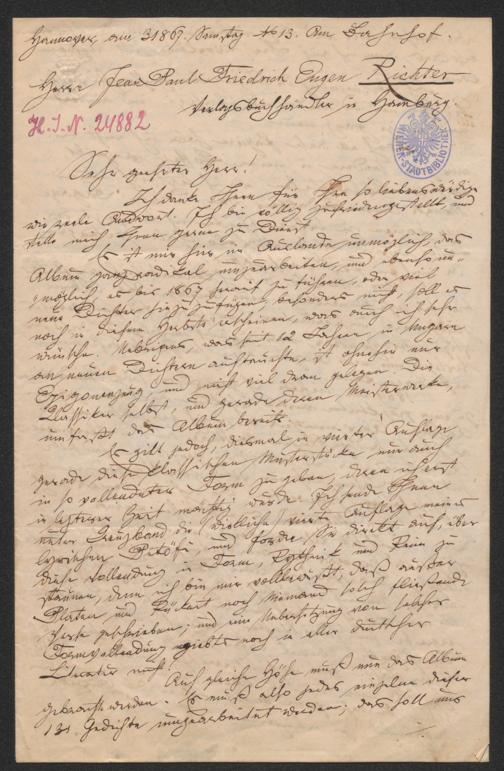 Hannover, am 31867. Samstag No 13. Am Bahnhof.
Herrn Jean Paul Friedrich Eugen Richter
Verlagsbuchhändler in Hamburg.
H. I. N. 24882
WIENER STADTBIBLIOTHEK
Sehr geehrter Herr!
Ich danke Ihnen für Ihre so liebenswürdige
wie Antwort. Ich bin völlig zufriedengestellt, und
stelle mich Ihnen gerne zu Dienst.
Es ist mir hier im Auslande unmöglich das
Album ganz radikal umzuarbeiten, und ebenso un-
möglich, es bis 1867 herauf zu führen, oder viel
neue Dichter hinzuzufügen, besonders nicht, soll es
noch in diesem Herbste erscheinen, was auch ich sehr
wünsche. Uebrigens, was seit 12 Jahren in Ungarn
an neuen Dichtern auftauchte, ist ohnehin nur
Epigonenzeug und nicht viel daran gelegen. Die
Klassiker selbst, und gerade deren Meisterwerke,
umfaßt das Album bereits.
Es gilt jedoch, diesmal in vierter Auflage
gerade diese klassischen Musterstücke nun auch
in so vollendeter Form zu geben, deren ich erst
in letzterer Zeit mächtig werde. Ich sende Ihnen
unter Kreuzband die vierte Auflage meines
lyrischen Petőfi, und fordere Sie direkt auf, über
diese Vollendung in Form, Rhythmik und Reim zu
staunen, denn ich bin mir vollbewußt, daß außer
Platen und Rückert noch Niemand solch fließende
Verse geschrieben; und eine Uebersetzung von solcher
Formvollendung giebts noch in aller deutscher
Literatur nicht!
Auf gleiche Höhe muß nun das Album
gebracht werden. Es muß also jedes einzelne dieser
131 Gedichte umgearbeitet werden; das soll uns